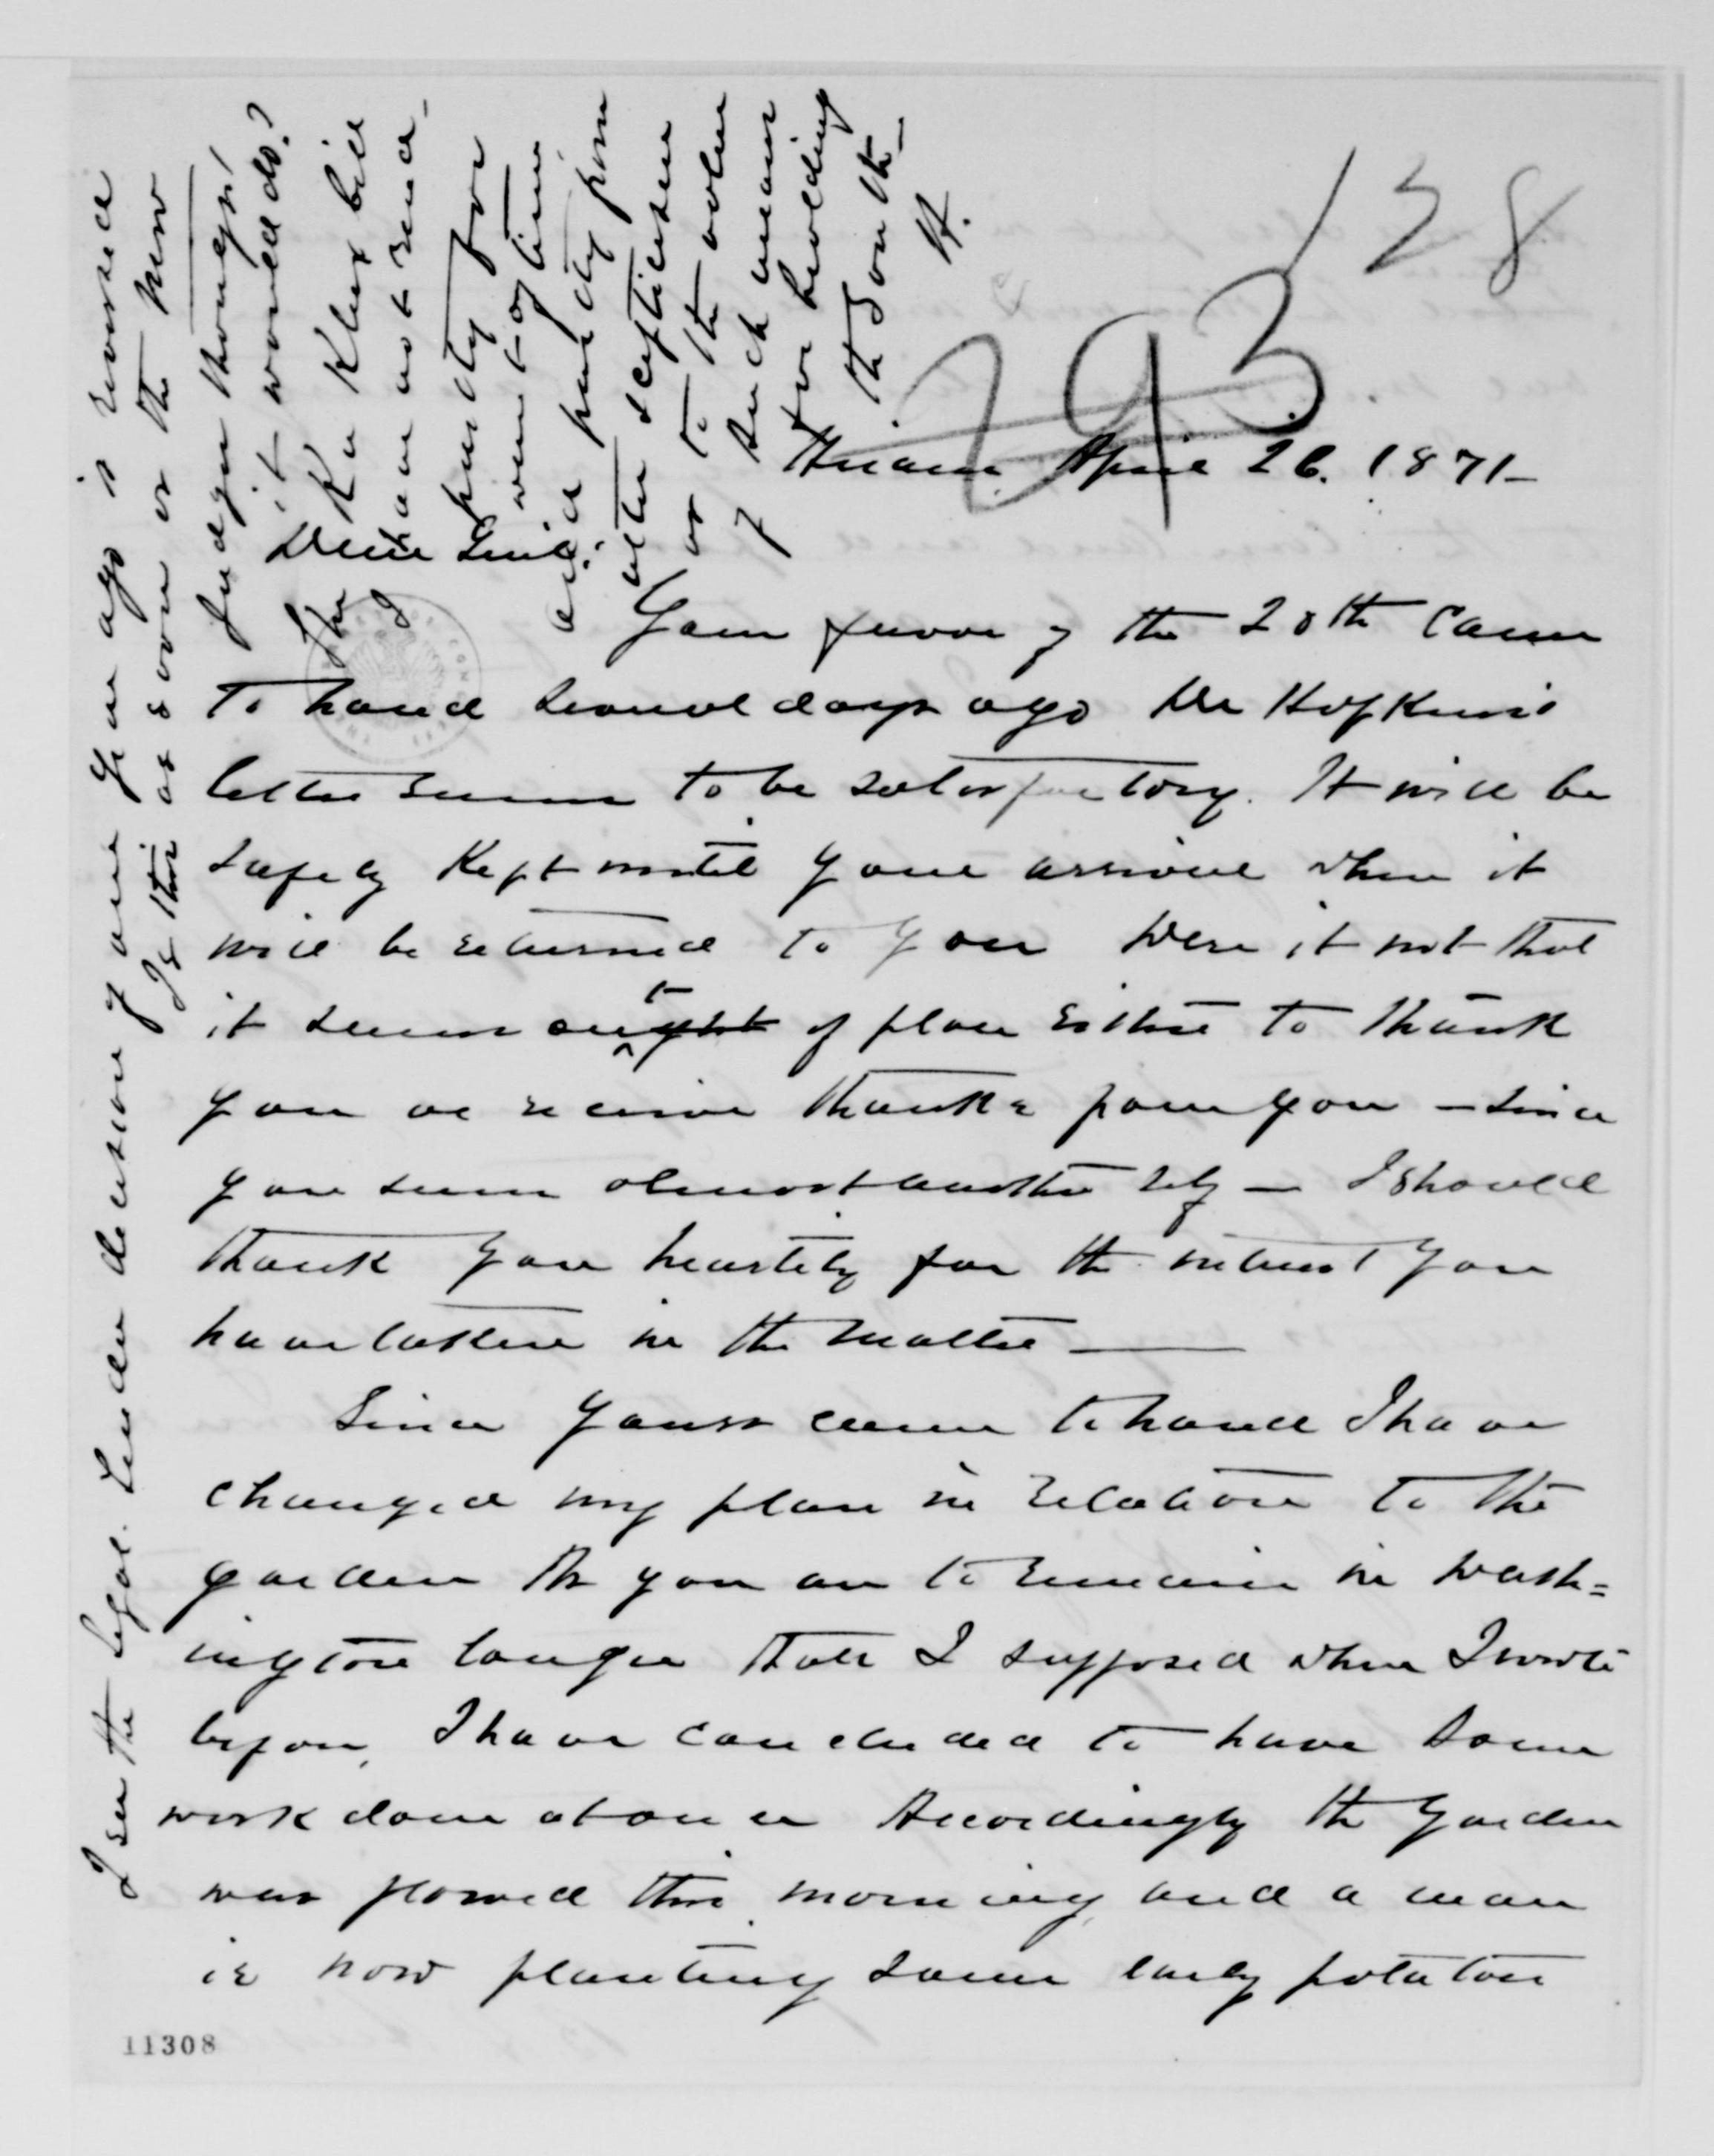 138
293
Hiram April 26. 1871—
Dear Genl:
Your favor of the 20th came
to hand several days ago Dr Hopkins'
letter seems to be satisfactory. It will be
safely Kept until your arrival when it
will be returned to you Were it not that
it seems out of place either to thank
you or receive thanks from you — since
you seem almost another self — I should
thank you heartily for the interest you
have taken in the matter —
Since yours came to hand I have
changed my plan in relation to the
garden As you are to remain in Wash=
ington longer than I supposed when I wrote
before, I have concluded to have some
work done at once Accordingly the garden
was plowed this morning, and a man
is now planting some early potatoes
I see the legal tender decision of one year ago is reversed
Is this as soon as the new
Judges thought
it would do?
The Ku Klux bill
I have not read,
partly for
want of time
and partly from
utter scepticism
as to the value
of such means
for holding
the South—
H.
11308